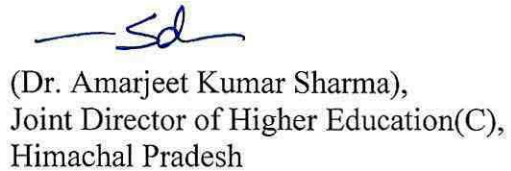 Sd
(Dr. Amarjeet Kumar Sharma),
Joint Director of Higher Education(C),
Himachal Pradesh